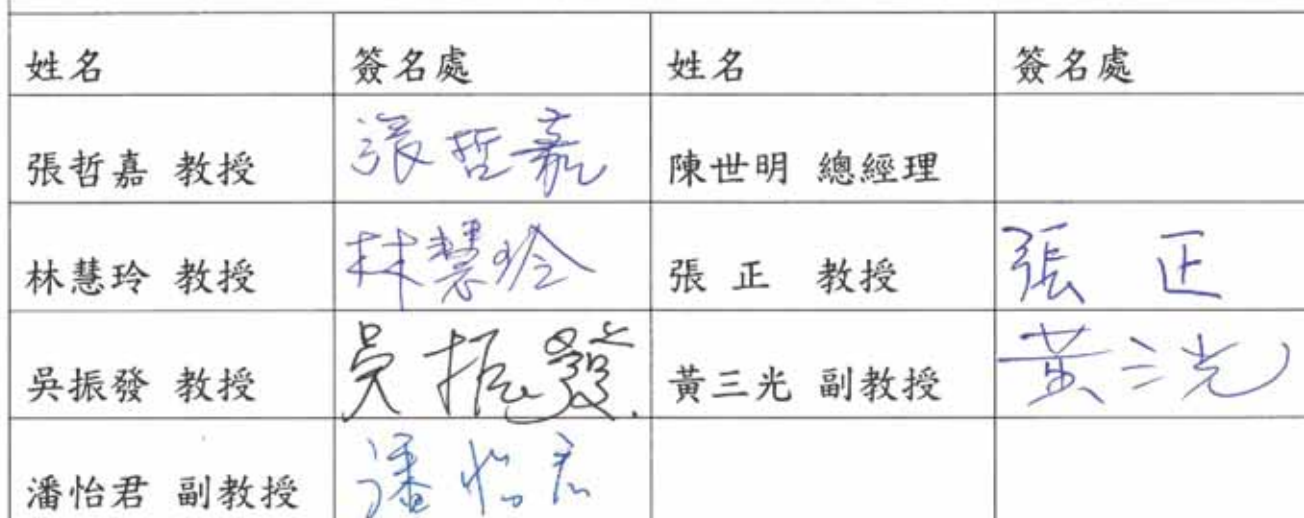 姓名 簽名處 姓名 簽名處
張哲嘉 教授 張哲嘉 陳世明 總經理
林慧玲 教授 林慧玲 張 正 教授 張 正
吳振發 教授 吳振發 黃三光 副教授 黃三光
潘怡君 副教授 潘怡君